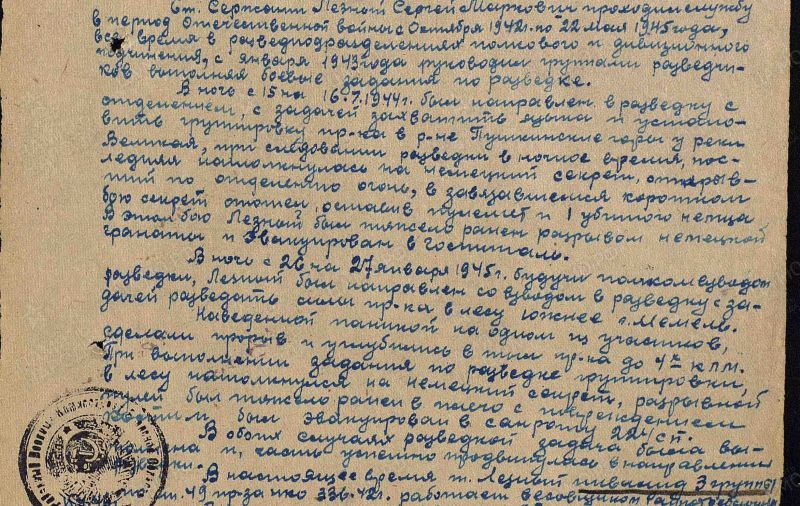 Ст. Сержант Лезный Сергей Маркович проходил службу
в период Отечественной войны с Октября 1942г. по 22 мая 1945 года,
все время в разведподразделениях полкового и дивизионного
подчинения, с января 1943 года руководил группами разведчи-
ков выполняя боевые задания по разведке.
В ночь с 15 на 16.7.1944г. был направлен в разведку с
отделением, с задачей захватить языка и устано-
вить группировку пр-ка в р-не Пушкинские горы у реки
Великая, при следовании разведки в ночное время, пос-
ледняя натолкнулась на немецкий секрет, открыв-
ший по отделению огонь, в завязавшемся коротком
бою секрет отошел, оставив пулемет и 1 убитого немца
В этом бою Лезный был тяжело ранен разрывом немецкой
гранаты и эвакуирован в госпиталь.
В ночь с 26 на 27 января 1945г. будучи помкомвзвода
разведки, Лезный был направлен со взводом в разведку с за-
дачей разведать силы пр-ка в лесу южнее г. Мемель.
Наведенной паникой на одном из участков,
сделали прорыв и углубились в тыл пр-ка до 4х клм.
При выполнении задания по разведке группировки,
в лесу натолкнулся на немецкий секрет, разрывной
пулей был тяжело ранен в плечо с повреждением
был эвакуирован в санроту 224 сп.
В обоих случаях разведкой задача была вы-
полнена и часть успешно продвинулась в направлении
В настоящее время т. Лезный инвалид 3 группы
по ст. 49 пр-за нко 336-42г. работает весовщиком